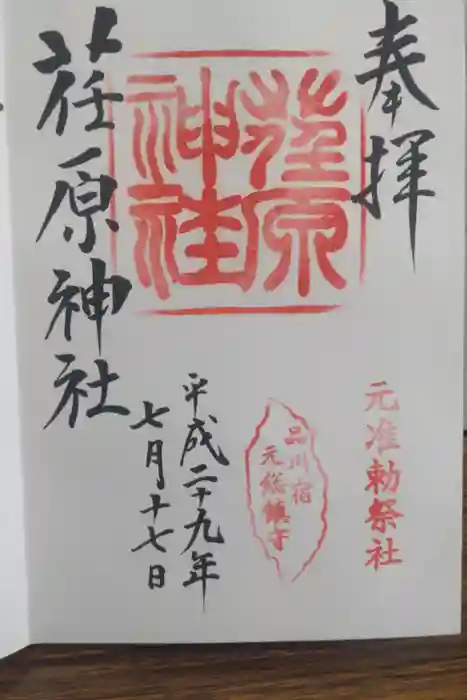 奉拝
元准勅祭社
荏原
神社
品川宿
元総鎮守
平成二十九年
七月十七日
荏原神社